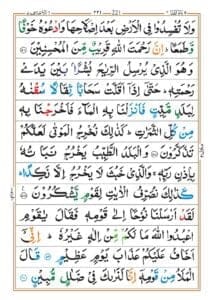 وَلَا تُفْسِدُوْا فِي الْاَرْضِ بَعْدَ اِصْلَاحِهَا وَادْعُوْهُ خَوْفًا
وَّطَمَعًا ؕ اِنَّ رَحْمَتَ اللّٰهِ قَرِيْبٌ مِّنَ الْمُحْسِنِيْنَ
وَهُوَ الَّذِيْ يُرْسِلُ الرِّيٰحَ بُشْرًۢا بَيْنَ يَدَيْ
رَحْمَتِهٖ ؕ حَتّٰۤى اِذَاۤ اَقَلَّتْ سَحَابًا ثِقَالًا سُقْنٰهُ
لِبَلَدٍ مَّيِّتٍ فَاَنْزَلْنَا بِهِ الْمَآءَ فَاَخْرَجْنَا بِهٖ
مِنْ كُلِّ الثَّمَرٰتِ ؕ كَذٰلِكَ نُخْرِجُ الْمَوْتٰى لَعَلَّكُمْ
تَذَكَّرُوْنَ وَالْبَلَدُ الطَّيِّبُ يَخْرُجُ نَبَاتُهٗ
بِاِذْنِ رَبِّهٖ ۚ وَالَّذِيْ خَبُثَ لَا يَخْرُجُ اِلَّا نَكِدًا ؕ
كَذٰلِكَ نُصَرِّفُ الْاٰيٰتِ لِقَوْمٍ يَّشْكُرُوْنَ
لَقَدْ اَرْسَلْنَا نُوْحًا اِلٰى قَوْمِهٖ فَقَالَ يٰقَوْمِ
اعْبُدُوا اللّٰهَ مَا لَكُمْ مِّنْ اِلٰهٍ غَيْرُهٗ ؕ اِنِّيْۤ
اَخَافُ عَلَيْكُمْ عَذَابَ يَوْمٍ عَظِيْمٍ قَالَ
الْمَلَاُ مِنْ قَوْمِهٖۤ اِنَّا لَنَرٰىكَ فِيْ ضَلٰلٍ مُّبِيْنٍ